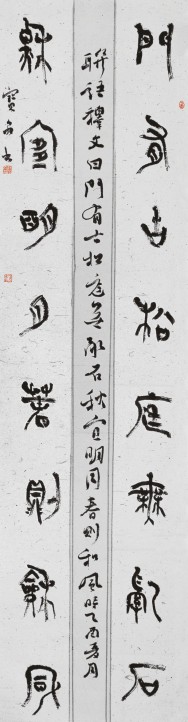 門有古松庭無亂石
聯語釋文曰門有古松庭無亂石秋宜明月春則和風時乙酉月
秋宜明月春則龢風
寶書